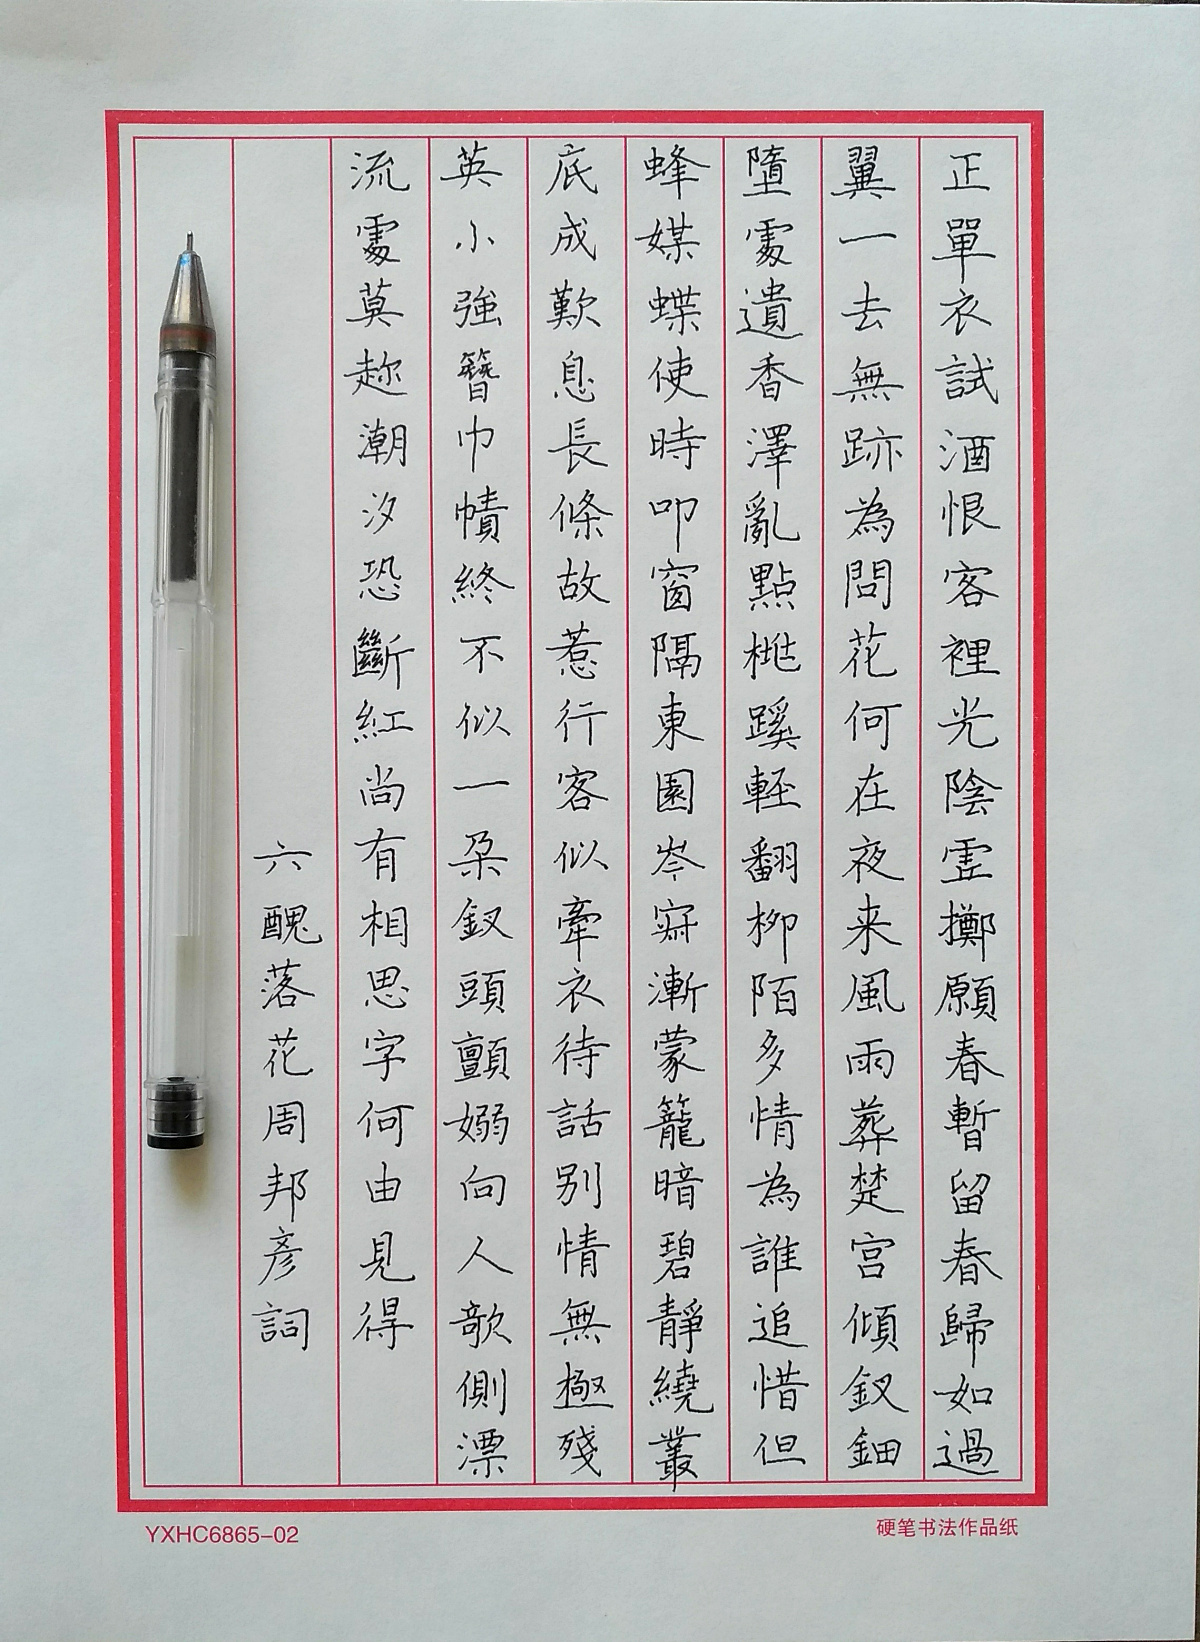 正單衣試酒恨客裡光陰虛擲願春暫留春歸如過
翼一去無跡為問花何在夜来風雨葬楚宮傾釵鈿
墮處遺香澤亂點桃蹊輕翻柳陌多情為誰追惜但
蜂媒蝶使時叩窗隔東園岑寂漸蒙籠暗碧靜繞叢
底成歎息長條故惹行客似牽衣待話別情無極殘
英小強簪巾幘終不似一朵釵頭顫嫋向人欹側漂
流處莫趁潮汐恐斷紅尚有相思字何由見得
六醜落花周邦彥詞
YXHC6865-02
硬笔书法作品纸